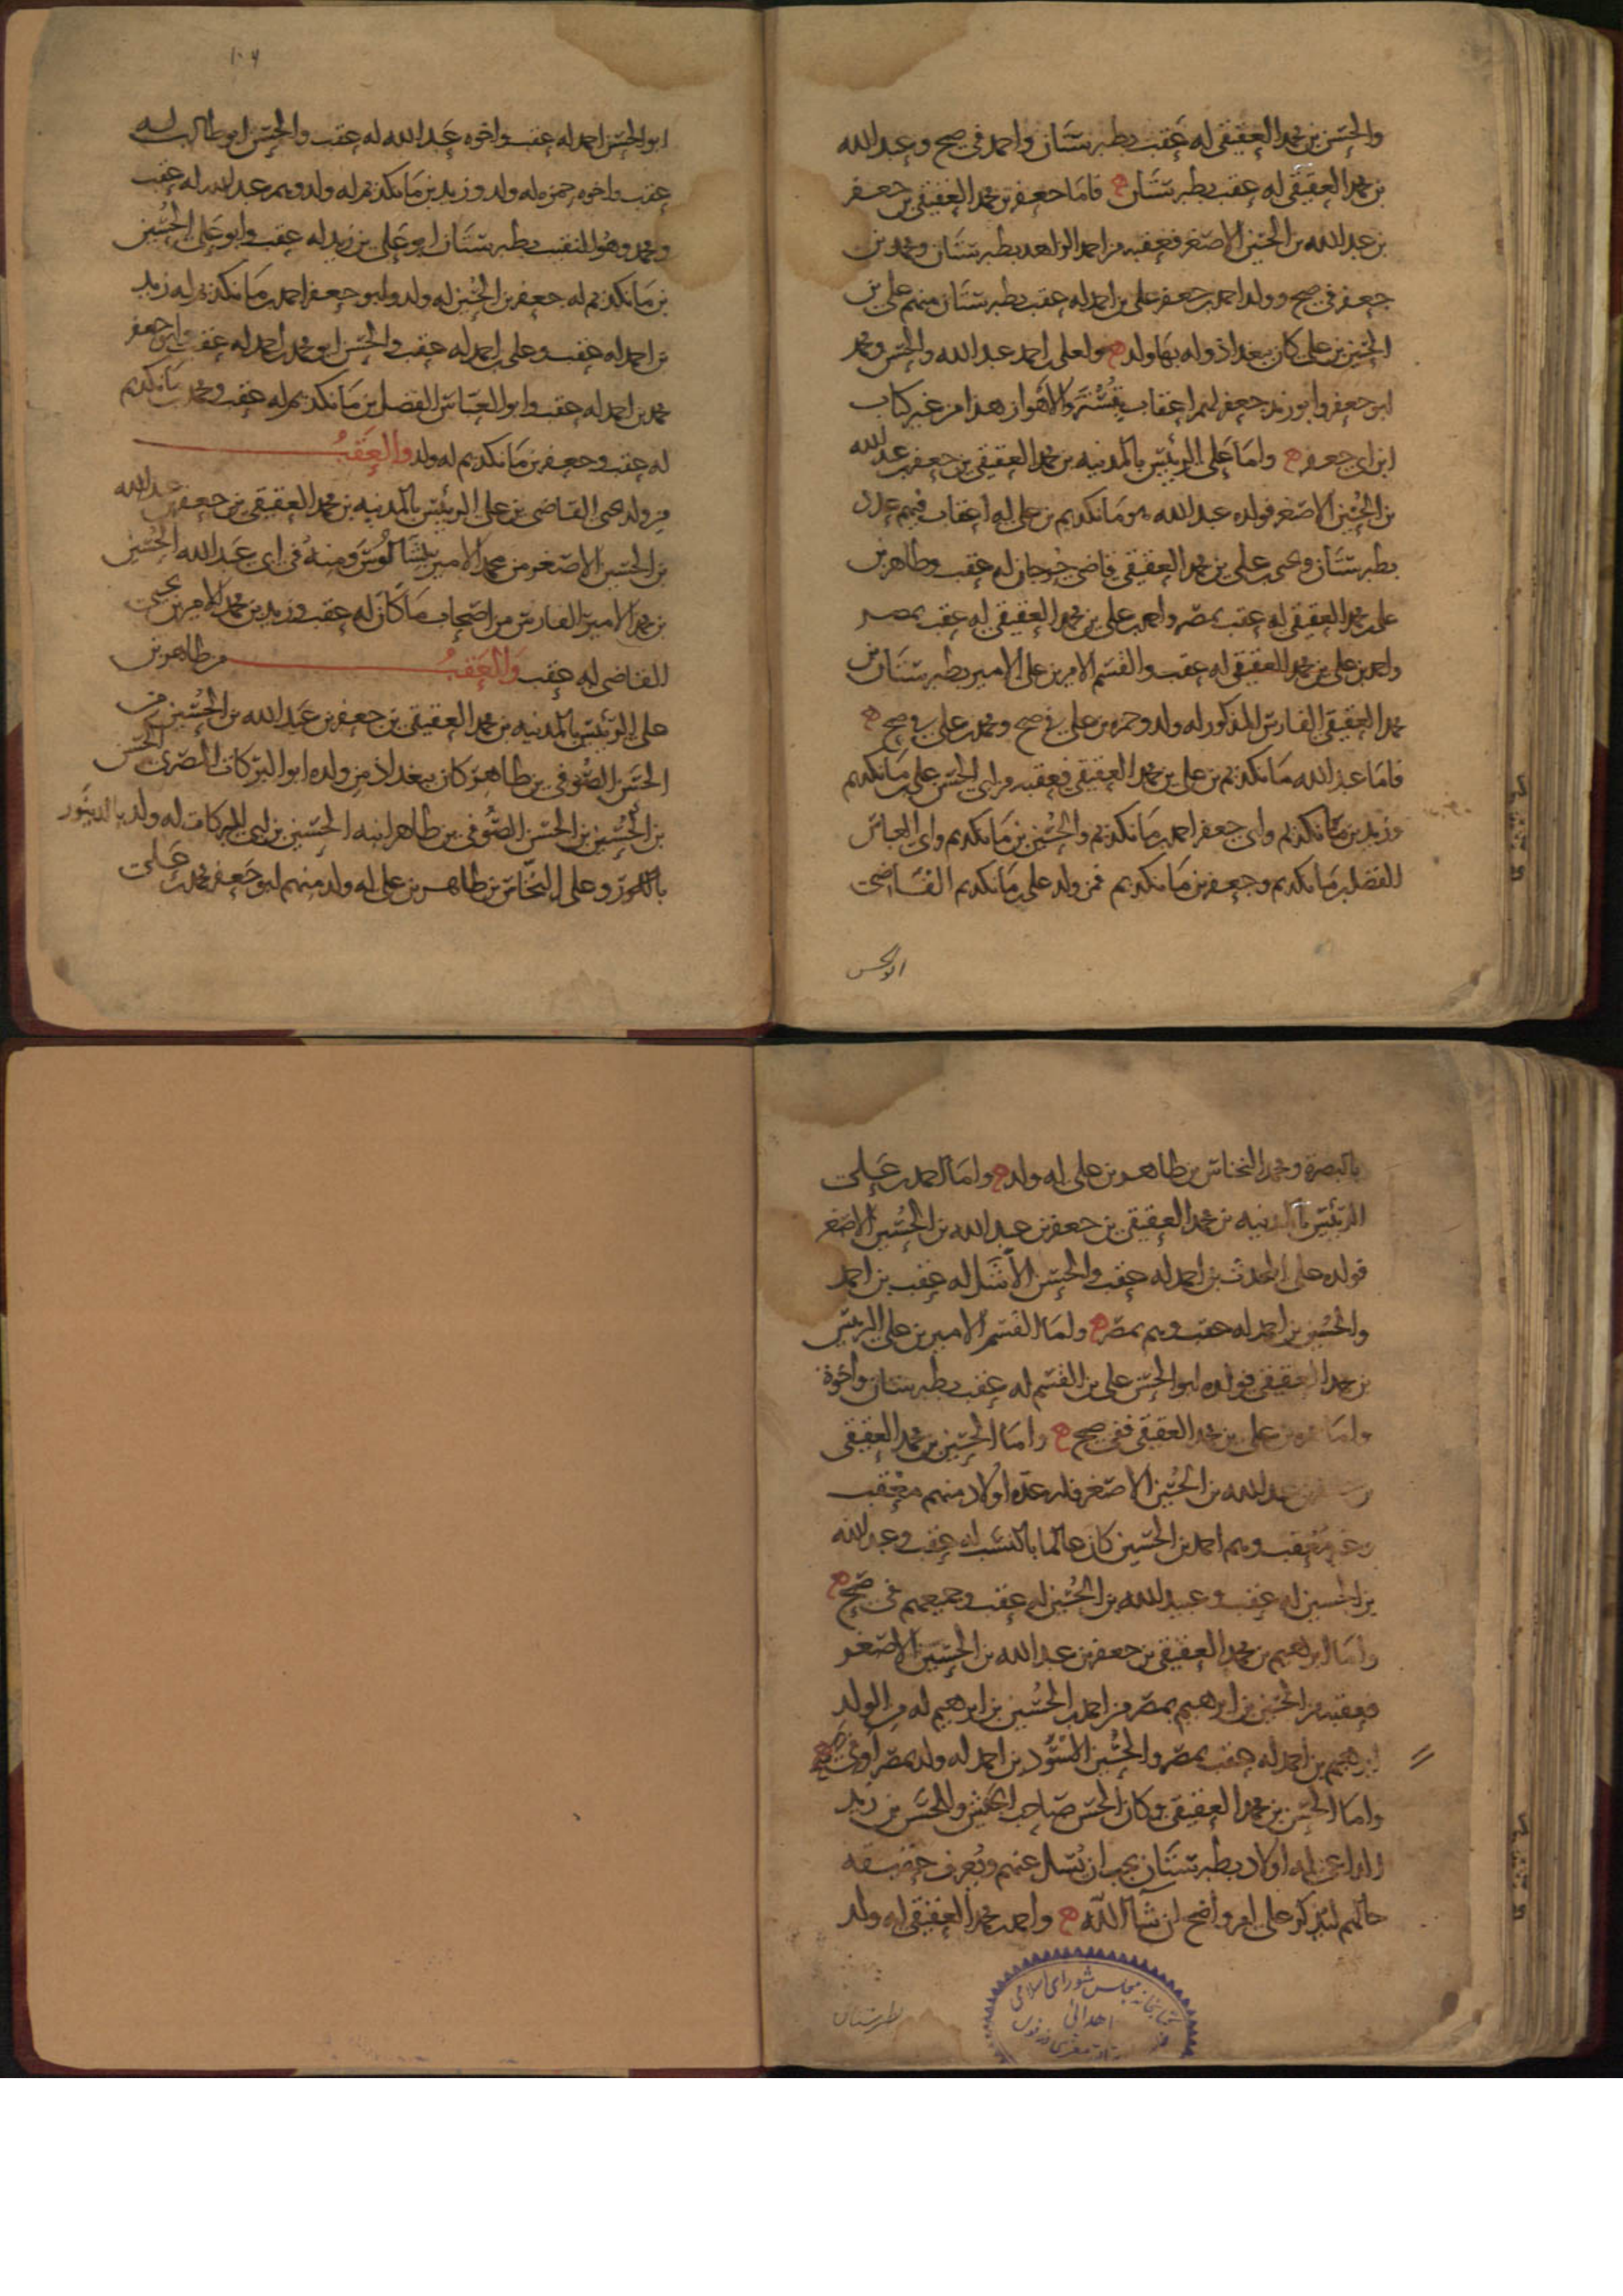 والحسن بن محمد العقيقي له عقب بطبرستان واحمد في صح وعبد الله
بن محمد العقيقي له عقب بطبرستان ه فاما جعفر بن محمد العقيقي بن جعفر
بن عبد الله بن الحسين الاصغر فعقبه من احمد الزاهد بطبرستان ومحمد بن
جعفر في صح وولد احمد بن جعفر علي بن احمد له عقب بطبرستان منهم علي بن
الحسين بن علي كان ببغداذ وله بها ولد ه ولعلي بن احمد عبد الله والحسن ومحمد
ابو جعفر وابو زيد جعفر لهم اعقاب بتستر والاهواز هذا من غير كتاب
ابن ابي جعفر ه واما علي الرئيس بالمدينه بن محمد العقيقي بن جعفر بن عبد الله
بن الحسين الاصغر فولده عبد الله هو مانكديم بن علي له اعقاب فيهم عدد
بطبرستان ويحيى بن علي بن محمد العقيقي قاضي جرجان له عقب وطاهر بن
علي بن محمد العقيقي له عقب بمصر واحمد بن علي بن محمد العقيقي له عقب بمصر
واحمد بن علي بن محمد العقيقي له عقب والقسم الامير بن علي الامير بطبرستان بن
محمد العقيقي الفارس المذكور له ولد وحمزه بن علي في صح ومحمد بن علي في صح ه
فاما عبد الله مانكديم بن علي بن محمد العقيقي فعقبه من ابي الحسن علي بن مانكديم
وزيد بن مانكديم وابي جعفر احمد بن مانكديم والحسين بن مانكديم وابي العباس
الفضل بن مانكديم وجعفر بن مانكديم فمن ولد علي بن مانكديم القاضي
ابو الحسن
١٠٦
ابو الحسن احمد له عقب واخوه عبد الله له عقب والحسن ابو طالب له
عقب واخوه حمزه له ولد وزيد بن مانكديم له ولد وهم عبد الله له عقب
ومحمد وهو النقيب بطبرستان ابو علي بن زيد له عقب وابو علي الحسين
بن مانكديم له جعفر بن الحسين له ولد وابو جعفر احمد بن مانكديم له زيد
بن احمد له عقب وعلي بن احمد له عقب والحسن ابو محمد بن احمد له عقب وابو جعفر
محمد بن احمد له عقب وابو العباس الفضل بن مانكديم له عقب ومحمد بن مانكديم
له عقب وجعفر بن مانكديم له ولد والعقب
من ولد يحيى القاضي بن علي الرئيس بالمدينه بن محمد العقيقي بن جعفر بن عبد الله
بن الحسين الاصغر من محمد الامير بشالوس ومنه في ابي عبد الله الحسين
بن محمد الامير الفارس من اصحاب ماكان له عقب وزيد بن محمد الامير بن يحيى
القاضي له عقب والعقب من طاهر بن
علي الرئيس بالمدينه بن محمد العقيقي بن جعفر بن عبد الله بن الحسين من
الحسن الصوفي بن طاهر كان ببغداذ من ولده ابو البركات المصري الحسن
بن الحسين بن الحسن الصوفي بن طاهر ابنه الحسين بن ابي البركات له ولد بالدينور
وعلي النخاس بن طاهر بن علي له ولد منهم ابو جعفر محمد بن علي
بالبصره ومحمد النخاس بن طاهر بن علي له ولد ه واما احمد بن علي
الرئيس بالمدينه بن محمد العقيقي بن جعفر بن عبد الله بن الحسين الاصغر
فولده علي المحدث بن احمد له عقب والحسن الاشل له عقب بن احمد
والحسين بن احمد له عقب وهم بمصر ه واما القسم الامير بن علي الرئيس
بن محمد العقيقي فولده ابو الحسن علي بن القسم له عقب بطبرستان واخوة
واما حمزه بن علي بن محمد العقيقي ففي صح ه واما الحسين بن محمد العقيقي
بن عبد الله بن الحسين الاصغر فله عدة اولاد منهم معقب
وغير معقب وهم احمد بن الحسين كان عالما بالنسب له عقب وعبد الله
بن الحسين له عقب وعبيد الله بن الحسين له عقب وجميعهم في صح ه
واما ابرهيم بن محمد العقيقي بن جعفر بن عبد الله بن الحسين الاصغر
فعقبه من الحسين بن ابرهيم بمصر من احمد بن الحسين بن ابرهيم له من الولد
ابرهيم بن احمد له عقب بمصر والحسين الاسود بن احمد له ولد بمصر او في صح ه
واما الحسن بن محمد العقيقي وكان الحسن صاحب الجيش للحسن بن زيد
الداعي له اولاد بطبرستان يجب ان يسل عنهم ويعرف حقيقه
حالهم ليذكر علي امر واضح ان شا الله ه واحمد بن محمد العقيقي له ولد
بطبرستان
كتابخانه مجلس شوراى اسلامى
اهدائى